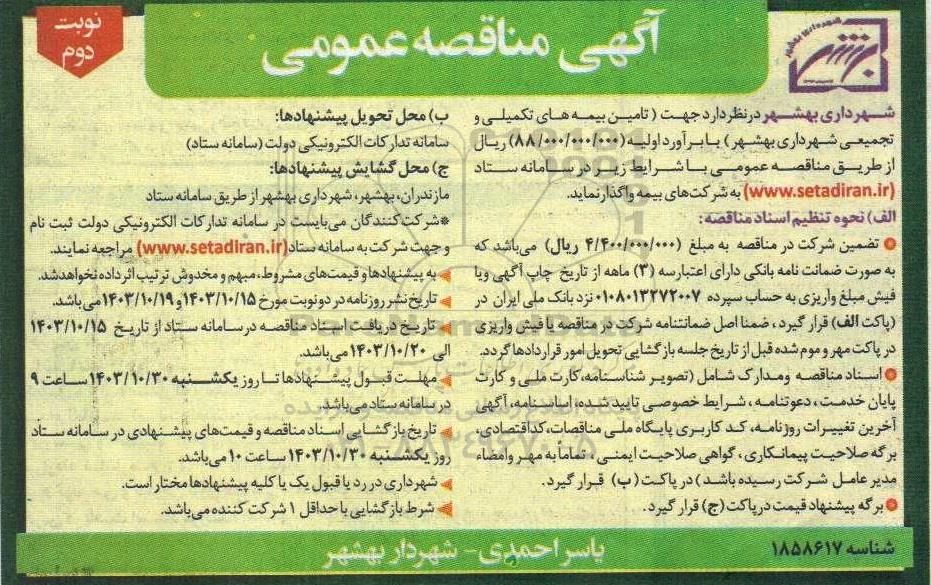 آگهی مناقصه عمومی
نوبت
دوم
شهرداری بهشهر
شهرداری بهشهر درنظردارد جهت (تامین بیمه های تکمیلی و
تجمیعی شهرداری بهشهر) با برآورد اولیه (۸۸/۰۰۰/۰۰۰/۰۰۰) ریال
از طریق مناقصه عمومی با شرایط زیر در سامانه ستاد
(www.setadiran.ir) به شرکت‌های بیمه واگذار نماید.
الف) نحوه تنظیم اسناد مناقصه:
تضمین شرکت در مناقصه به مبلغ (۴/۴۰۰/۰۰۰/۰۰۰ ریال) می‌باشد که
به صورت ضمانت نامه بانکی دارای اعتبار سه (۳) ماهه از تاریخ چاپ آگهی ویا
فیش مبلغ واریزی به حساب سپرده ۰۱۰۸۰۱۳۲۷۲۰۰۷ نزد بانک ملی ایران در
(پاکت الف) قرار گیرد، ضمنا اصل ضمانتنامه شرکت در مناقصه یا فیش واریزی
در پاکت مهر و موم شده قبل از تاریخ جلسه بازگشایی تحویل امور قراردادها گردد.
اسناد مناقصه ومدارک شامل (تصویر شناسنامه،کارت ملی و کارت
پایان خدمت، دعوتنامه، شرایط خصوصی تایید شده، اساسنامه، آگهی
آخرین تغییرات روزنامه، کد کاربری پایگاه ملی مناقصات،کداقتصادی،
برگه صلاحیت پیمانکاری، گواهی صلاحیت ایمنی، تماما به مهر وامضاء
مدیر عامل شرکت رسیده باشد) در پاکت (ب) قرار گیرد.
برگه پیشنهاد قیمت در پاکت (ج) قرار گیرد.
ب) محل تحویل پیشنهادها:
سامانه تدارکات الکترونیکی دولت (سامانه ستاد)
ج) محل گشایش پیشنهادها:
مازندران، بهشهر، شهرداری بهشهر از طریق سامانه ستاد
*شرکت‌کنندگان می‌بایست در سامانه تدارکات الکترونیکی دولت ثبت نام
و جهت شرکت به سامانه ستاد (www.setadiran.ir) مراجعه نمایند.
به پیشنهادها و قیمت‌های مشروط، مبهم و مخدوش ترتیب اثر داده نخواهد شد.
تاریخ نشر روزنامه در دو نوبت مورخ ۱۴۰۳/۱۰/۱۵ و ۱۴۰۳/۱۰/۱۹ می‌باشد.
تاریخ دریافت اسناد مناقصه در سامانه ستاد از تاریخ ۱۴۰۳/۱۰/۱۵
الی ۱۴۰۳/۱۰/۲۰ می‌باشد.
مهلت قبول پیشنهادها تا روز یکشنبه ۱۴۰۳/۱۰/۳۰ ساعت ۹
در سامانه ستاد می‌باشد
تاریخ بازگشایی اسناد مناقصه و قیمت‌های پیشنهادی در سامانه ستاد
روز یکشنبه ۱۴۰۳/۱۰/۳۰ ساعت ۱۰ می‌باشد.
شهرداری در رد یا قبول یک یا کلیه پیشنهادها مختار است.
شرط بازگشایی با حداقل ۱ شرکت کننده می‌باشد.
شناسه ۱۸۵۸۶۱۷
یاسر احمدی- شهردار بهشهر